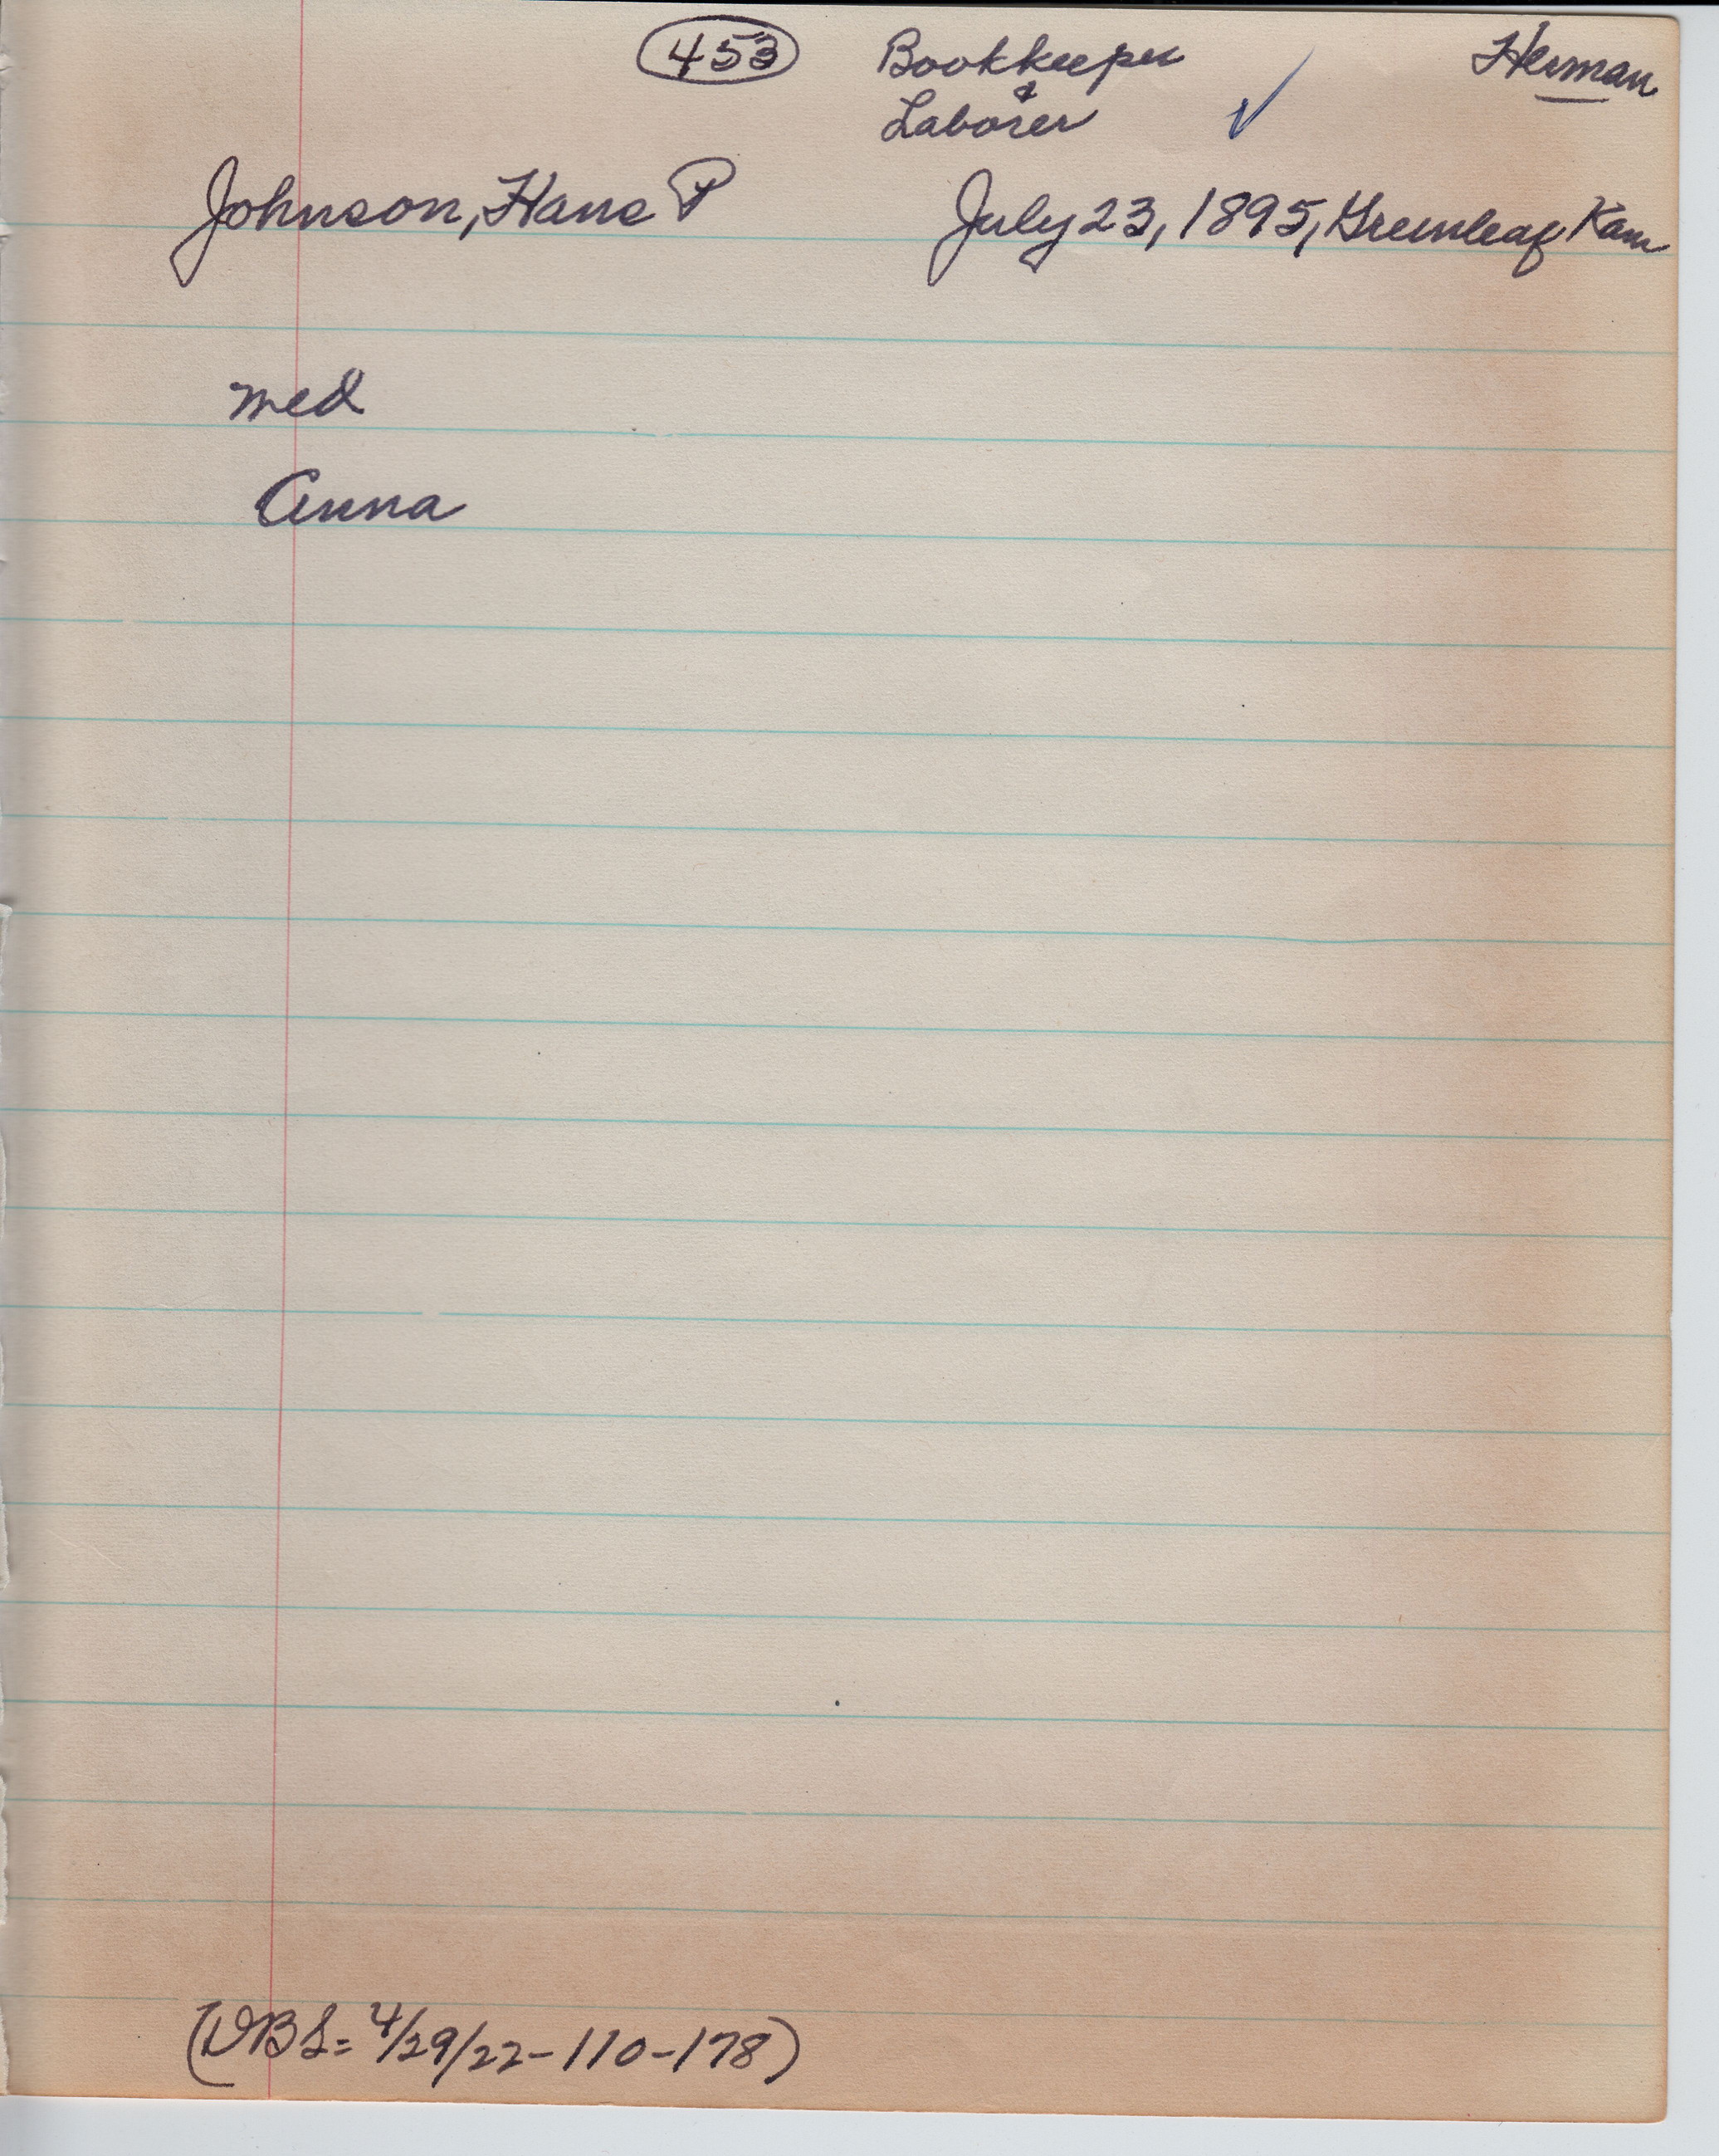 453 Bookkeeper Herman
& Laborer ✓
Johnson, Hans P July 23, 1895, Greenleaf Kans
med
Anna
(DBS= 4/29/22-110-178)